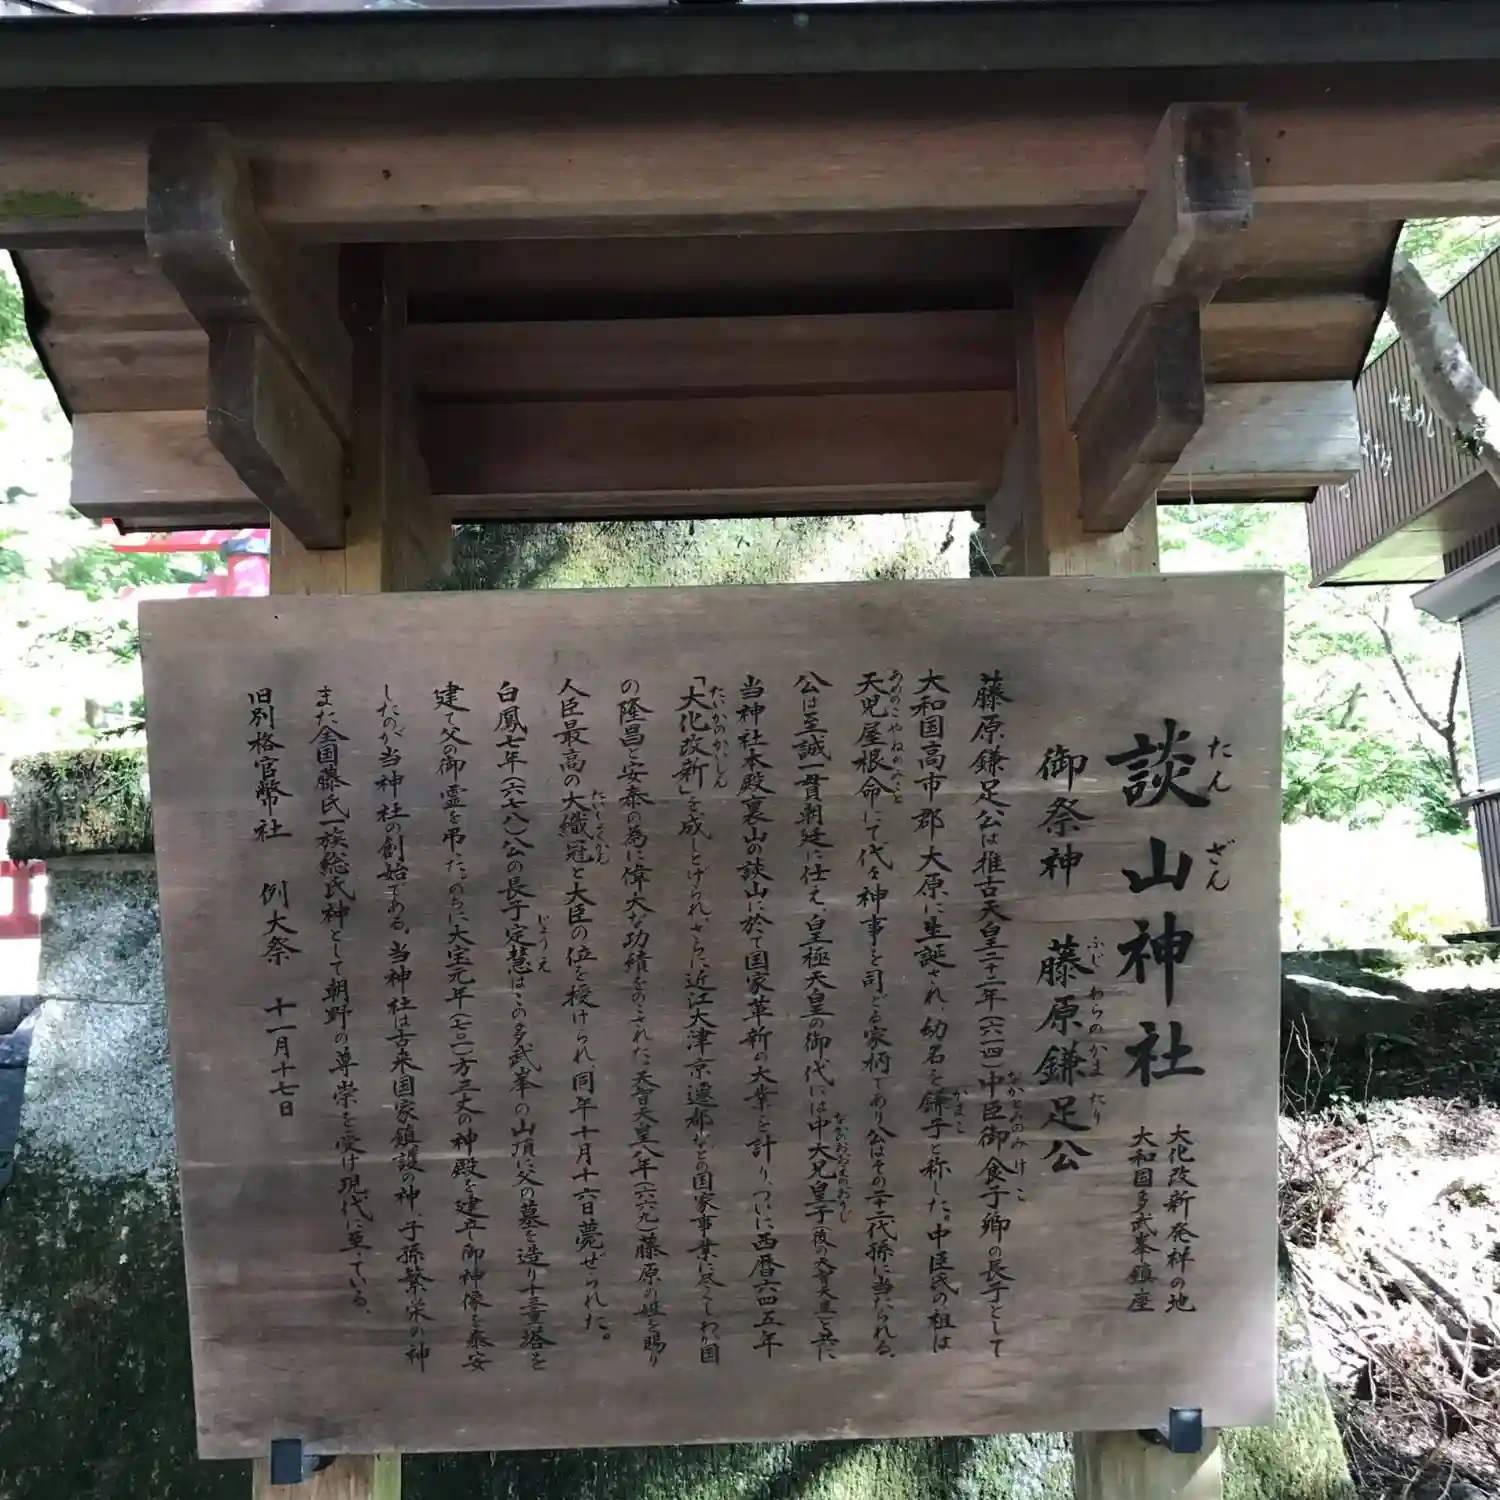 談山神社
たんざん
大化改新発祥の地
大和国多武峯鎮座
御祭神 藤原鎌足公
ふじわらのかまたり
藤原鎌足公は推古天皇二十二年(六一四)中臣御食子卿の長子として
なかとみのみけこ
大和国高市郡大原に生誕され、幼名を鎌子と称した。中臣氏の祖は
かまこ
天児屋根命にて代々神事を司どる家柄であり公はその二十二代孫に当たられる。
あめのこやねのみこと
公は至誠一貫朝廷に仕え、皇極天皇の御代には中大兄皇子(後の天智天皇)と共に
なかのおおえのおうじ
当神社本殿裏山の談山に於て国家革新の大業を計り、ついに西暦六四五年
「大化改新」を成しとげられ、さらに近江大津京遷都などの国家事業に尽くしわが国
たいかのかいしん
の隆昌と安泰の為に偉大な功績をのこされた。天智天皇八年(六六九)藤原の姓を賜り
人臣最高の大織冠と大臣の位を授けられ、同年十月十六日薨ぜられた。
たいしょくかん
白鳳七年(六七八)公の長子定慧はこの多武峯の山頂に父の墓を造り十三重塔を
じょうえ
建て父の御霊を弔した。のちに大宝元年(七〇一)方三丈の神殿を建立し御神像を泰安
したのが当神社の創始である。当神社は古来国家鎮護の神、子孫繁栄の神
また全国藤氏一族総氏神として朝野の尊崇を受け現代に至っている。
旧別格官幣社 例大祭 十一月十七日